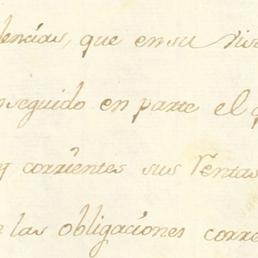 dencias, que en su vis
nseguido en parte el
corrientes sus rentas
las obligaciones corre